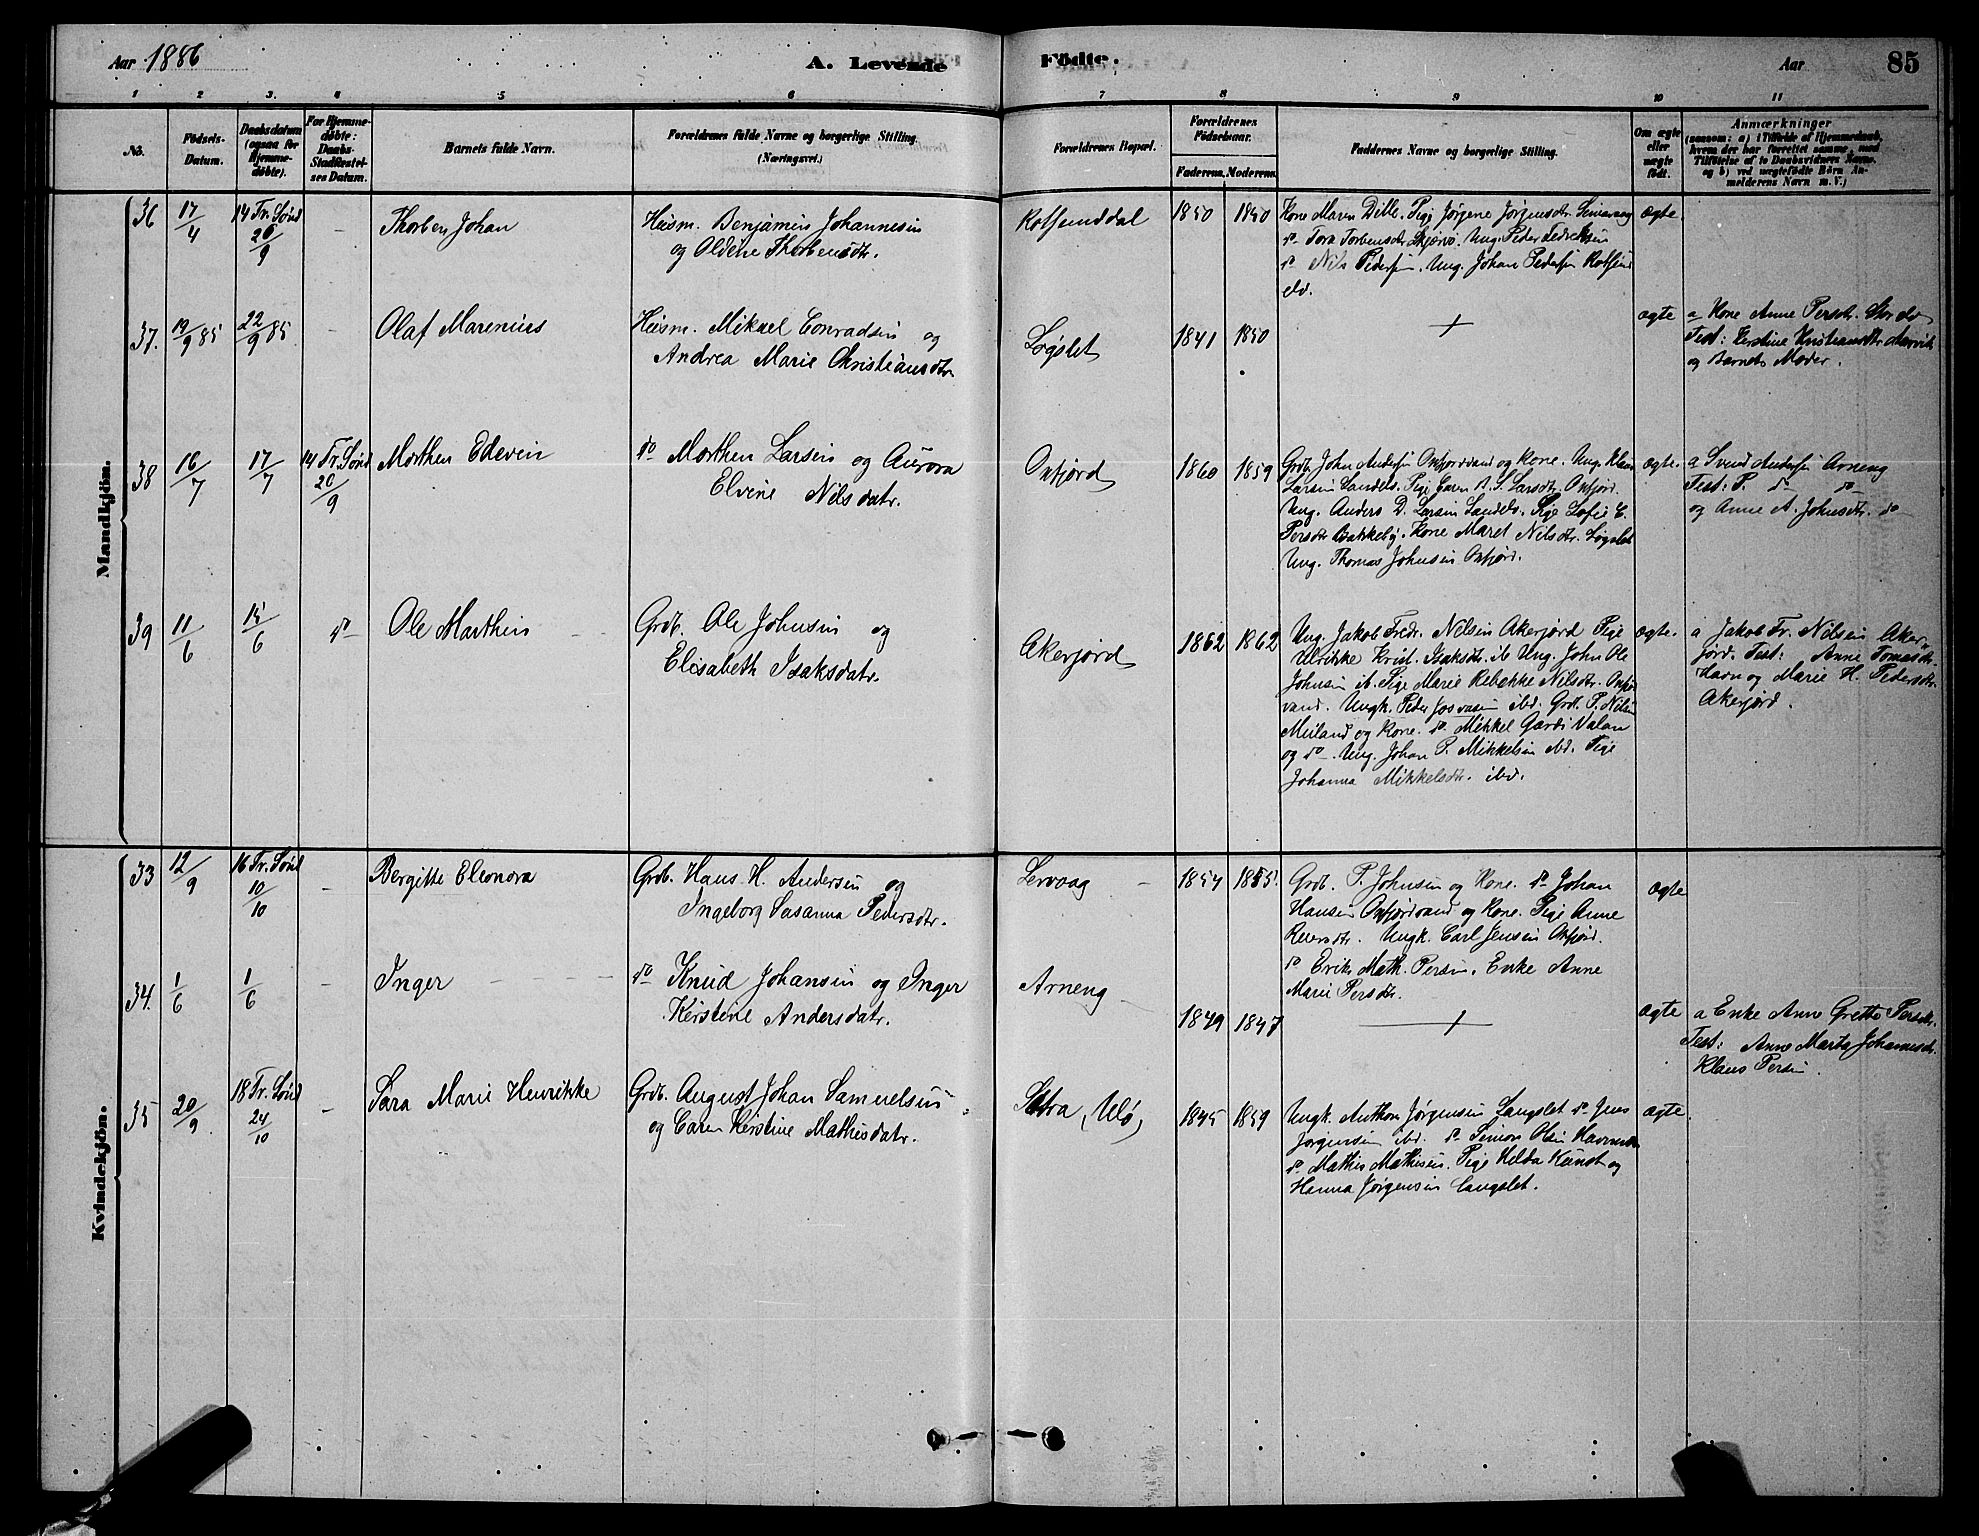 Aar 1886
A. Levende
Födte.
Aar
85
1 2 3. 4 5 6 7 8 9 10 11
No.
Födsels-
Datum.
Daabsdatum
(ogsaa for
Hjemme-
döbte).
For Hjemme-
döbte:
Daabs-
Stadfæstel-
ses Datum.
Barnets fulde Navn.
Forældrenes fulde Navne og borgerlige Stilling.
(Næringsvei.)
Forældrenes Bopæl.
Forældrenes
Födselsaar.
Faderens. Moderens.
Faddernes Navne og borgerlige Stilling.
Om ægte
eller
uægte
födt.
Anmærkninger
(saasom: a) i Tilfælde af Hjemmedaab,
hvem der har forrettet samme, med
Tilföielse af to Daabsvidners Navne.
og b) ved uægtefödte Börn An-
melderens Navn m. V.)
Mandkjön.
36 17/4 14 Tr. Sønd 26/9 – Thorben Johan
Huusm. Benjamin Johannesen
og Oldine Thorbensdtr.
Rotsunddal 1850 1850
Kone Maren Dille. Pige Jørgene Jørgensdtr
do Tora Torbensdtr Skjervø. Ung. Peder
do Nils Pedersen. Ung. Johan Pedersen Rotsund
elv.
ægte.
37. 19/9 85 22/9 85 – Olaf Marenius
Huusm. Mikael Conradsen og
Andrea Marie Christiansdtr.
Løgslet 1841 1850 + ægte
a Kone Anne Persdtr. Storelv
Test: Kerstine Kristiansdtr
og Barnets Moder.
38 16/7 17/7 14 Tr. Sønd 26/9 Morthen Edevin
do Morthen Larsen og Aurora
Elvine Nilsdatr.
Oxfjord 1860 1859
Grdb. John Andersen Oxfjordvand og Kone. Ung. Klaus
Larsen Sandelv. Pige Caren A. S. Larsdtr. Oxfjord.
Ung. Anders D. Larsen Sandelv. Pige Sofie E.
Persdtr Bakkeby. Kone Maret Nilsdtr. Løgslet
Ung. Thomas Johnsen Oxfjord.
ægte.
a Svend Andersen Arneng
Test: P. do do
og Anne A. Johnsdtr. do
39 11/6 15/6 do Ole Marthin
Grdb. Ole Johnsen og
Elisabeth Isaksdatr.
Akerjord 1862 1862
Ung. Jakob Fredr. Nilsen Akerjord Pige
Ulrikke Krist. Isaksdtr. ib Ung. John Ole
Johnsen ib. Pige Marie Rebekke Nilsdtr. Oxfjord
vand. Ungk. Peder Josvasen ibd. Grdb. P. Nilsen
Meiland og Kone. do Mikkel Gardi Valan
og do. Ung. Johan P. Mikkelsen ibd. Pige
Johanna Mikkelsdtr. ibd.
ægte.
a Jakob Fr. Nilsen Aker-
jord. Test: Anne Tomasdtr.
Havn og Marie H. Pedersdtr.
Akerjord.
Kvindekjön.
33 12/9 16 Tr. Sønd 10/10 – Bergitte Eleonora
Grdb. Hans H. Andersen og
Ingeborg Susanna Pedersdtr.
Lervaag 1854 1855.
Grdb. P. Johnsen og Kone. do Johan
Hansen Oxfjordvand og Kone. Pige Anne
Reiersdtr. Ungk. Carl Jensen Oxfjord.
do Erik Math. Persen. Enke Anne
Marie Persdtr.
ægte
34. 1/6 1/6 – Inger
do Knud Johansen og Inger
Kerstine Andersdatr.
Arneng 1849 1847 + ægte
a Enke Anne Grethe Persdtr.
Test: Anne Marta Johannesdtr.
Klaus Persen.
35 20/9 18 Tr. Sønd 24/10 – Sara Marie Henrikke
Grdb. August Johan Samuelsen
og Caren Kerstine Mathisdatr.
Sætra, Ulø, 1845 1859
Ungk. Anthon Jørgensen Langslet do Jens
Jørgensen ibd. do Simon Olsen
do Mathis Mathisen. Pige Helda Kunst og
Hanna Jørgensen Langslet.
ægte.